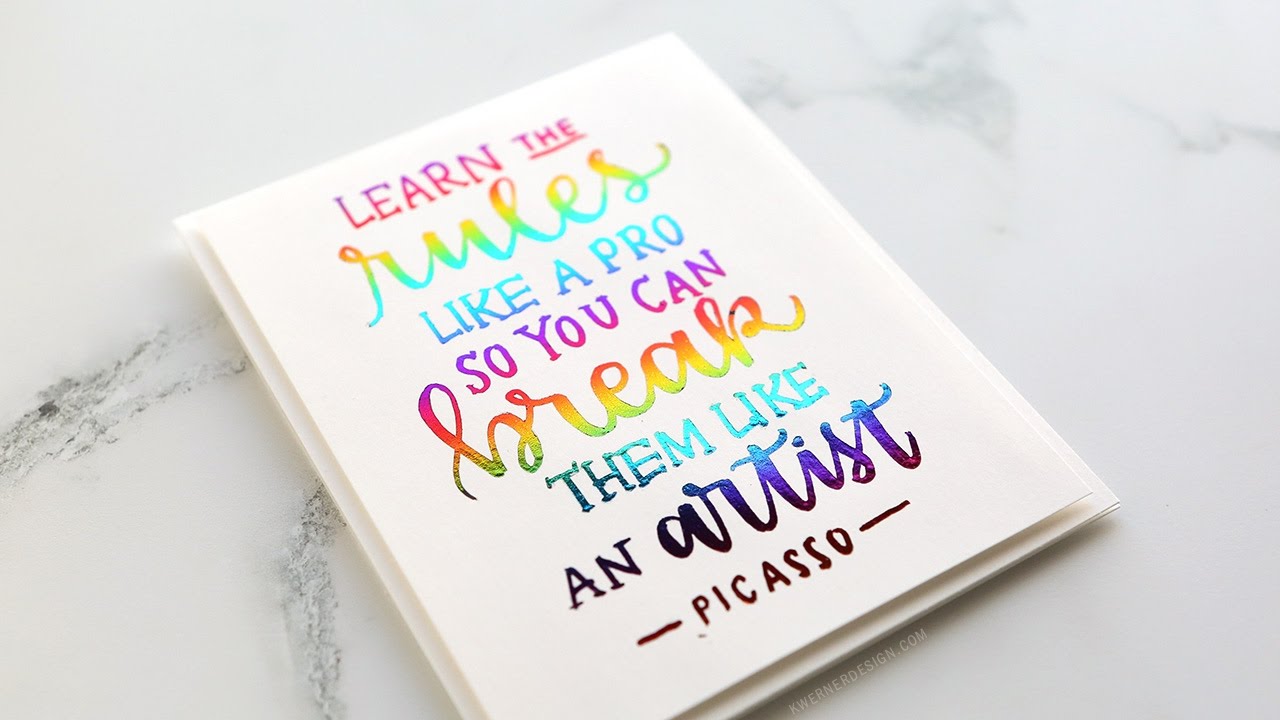 LEARN THE
rules
LIKE A PRO
SO YOU CAN
break
THEM LIKE
AN artist
—PICASSO—
KWERNERDESIGN.COM